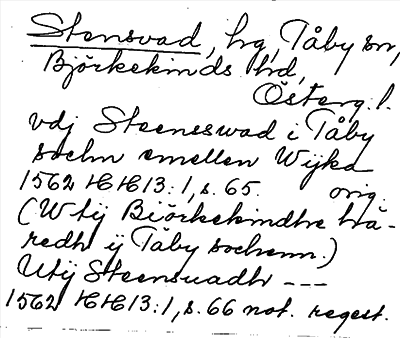 Stensvad, hg, Tåby sn,
Björkekinds hd,
Österg. l.
vdj Steensswad i Tåby
sochn emellen Wijka
1562 HH 13:1, s. 65. orig.
(Wtij Biörkekindhe hä-
redh ij Tåby sochenn.)
Utij Steensuadh ---
1562 HH 13:1, s. 66 not. regest.